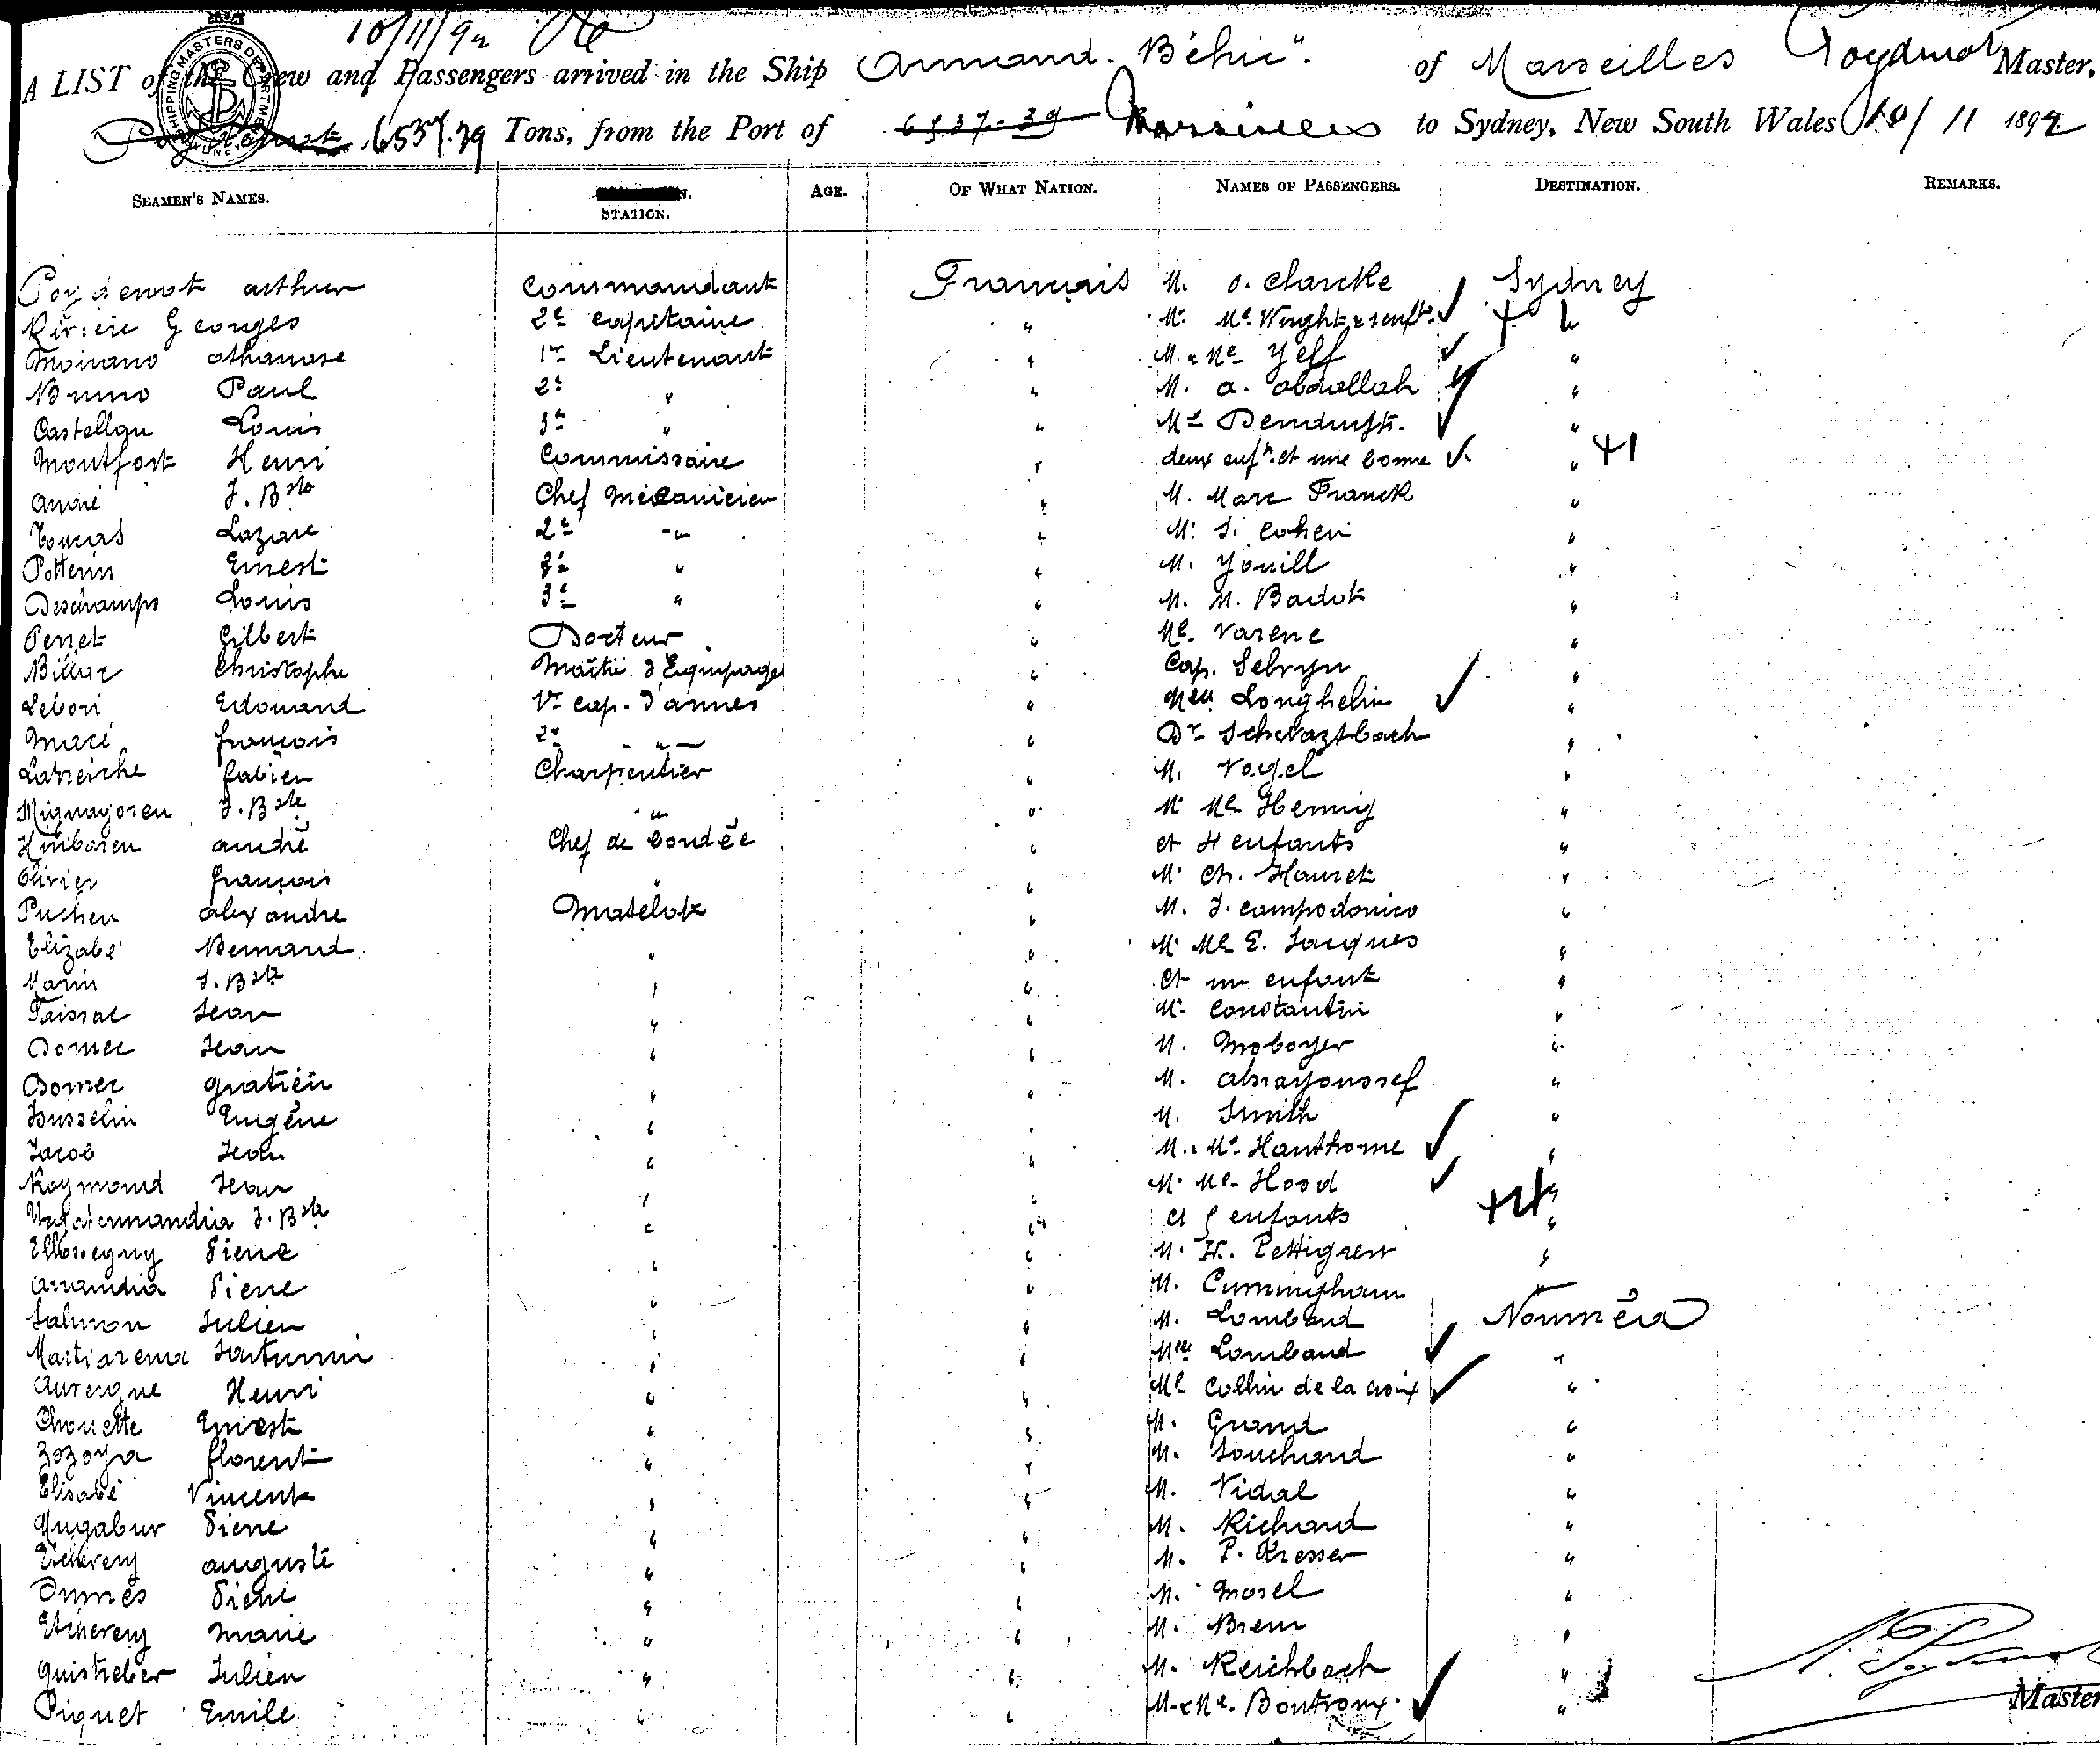 10/11/92
A LIST of the Crew and Passengers arrived in the Ship "Armand Béhic" of Marseilles Poydenot Master,
6537.39 Tons, from the Port of 6537-39 Marseilles to Sydney, New South Wales 10/11 1892
SEAMEN'S NAMES. STATION. AGE. OF WHAT NATION. NAMES OF PASSENGERS. DESTINATION. REMARKS.
Poydenot Arthur Commandant Français M. O. Clarcke Sydney
Rivière Georges 2e Capitaine " M. Me Wright "
Moirano Athanase 1er Lieutenant " M. & Me Yeff "
Bruno Paul 2e " " M. A. Abdullah "
Castellan Louis 3e " " Me "
Montfort Henri Commissaire " deux enfts et une bonne "
André J. Bste Chef Mécanicien " M. Marc Franck "
Lazare 2e " " M. S. Cohen "
Potterin Ernest " " M. Youill "
Deschamps Louis 3e " " M. M. Badot "
Perret Gilbert Docteur " Me Varene "
Christophe Maître d'Equipage " Cap. Selwyn "
Edouard 1er Cap. d'armes " Melle Longhelin "
Macé François 2e " " Dr "
Fabien Charpentier " M. Vogel "
J. Bste " " M. Me Hennig "
André Chef de bordée " et 4 enfants "
Olivier François " " M. Ch. Hauret "
Pucheu Alexandre Matelot " M. J. Campodonico "
Elizabé Bernard " " M. Me E. Jacques "
Marin J. Bste " " et un enfant "
Jean " " M. Constantin "
Domec Jean " " M. Moboyer "
Domec Gratien " " M. Abrayoussef "
Eugène " " M. Smith "
Jacob Jean " " M. & Me Hawthorne "
Raymond Jean " " M. Me Hood "
J. Bste " " et 5 enfants "
Pierre " " M. H. Pettigrew "
Arrandia Pierre " " M. Cunningham "
Salmon Julien " " M. Lombard Nouméa
Saturnin " " Melle Lombard "
Henri " " Me Collin de la Croix "
Chouette Ernest " " M. Grand "
Zozoya Florent " " M. Souchard "
Elisabé Vincent " " M. Vidal "
Pierre " " M. Richard "
Etchevery Auguste " " M. P. "
Pierre " " M. Morel "
Etchevery Marie " " M. Brem "
Quistreber Julien " " M. Reschbach "
Piquet Emile " " M. & Me Boutroux "
Master